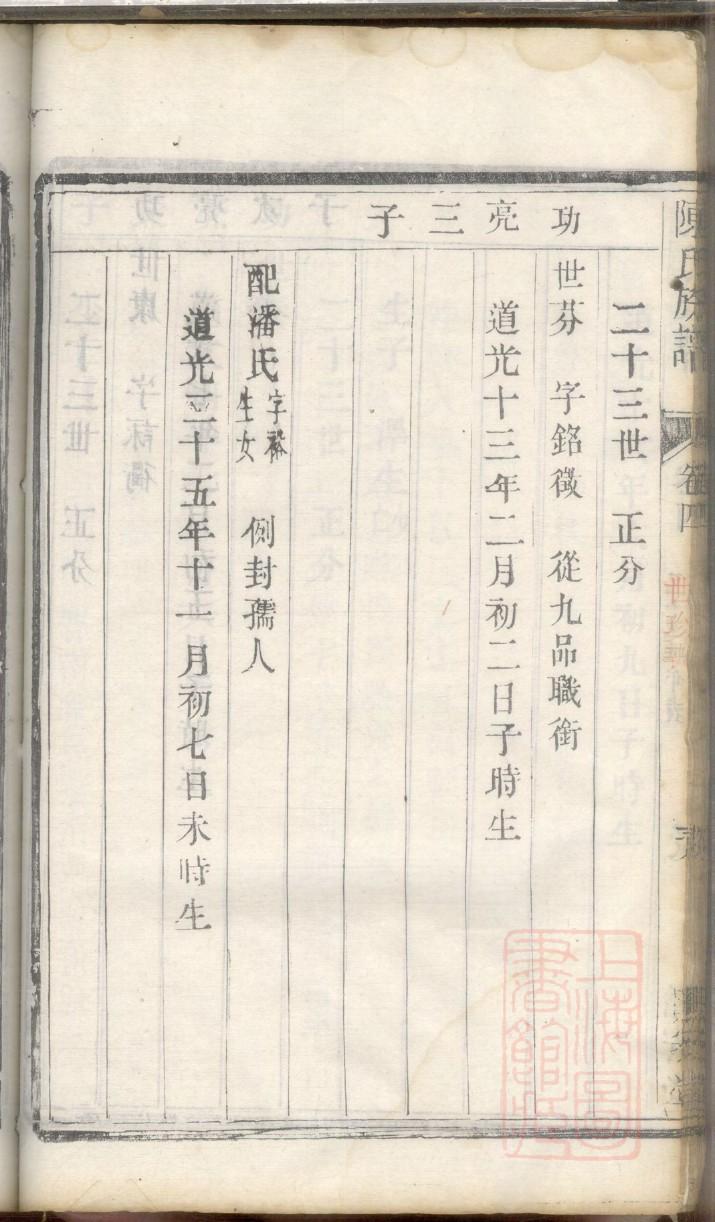 陳氏族譜 卷四
功亮三子
二十三世 正分
世芬 字銘徵 從九品職銜
道光十三年二月初二日子時生
配潘氏 字裕 生女 例封孺人
道光二十五年十一月初七日未時生
上海圖書館藏